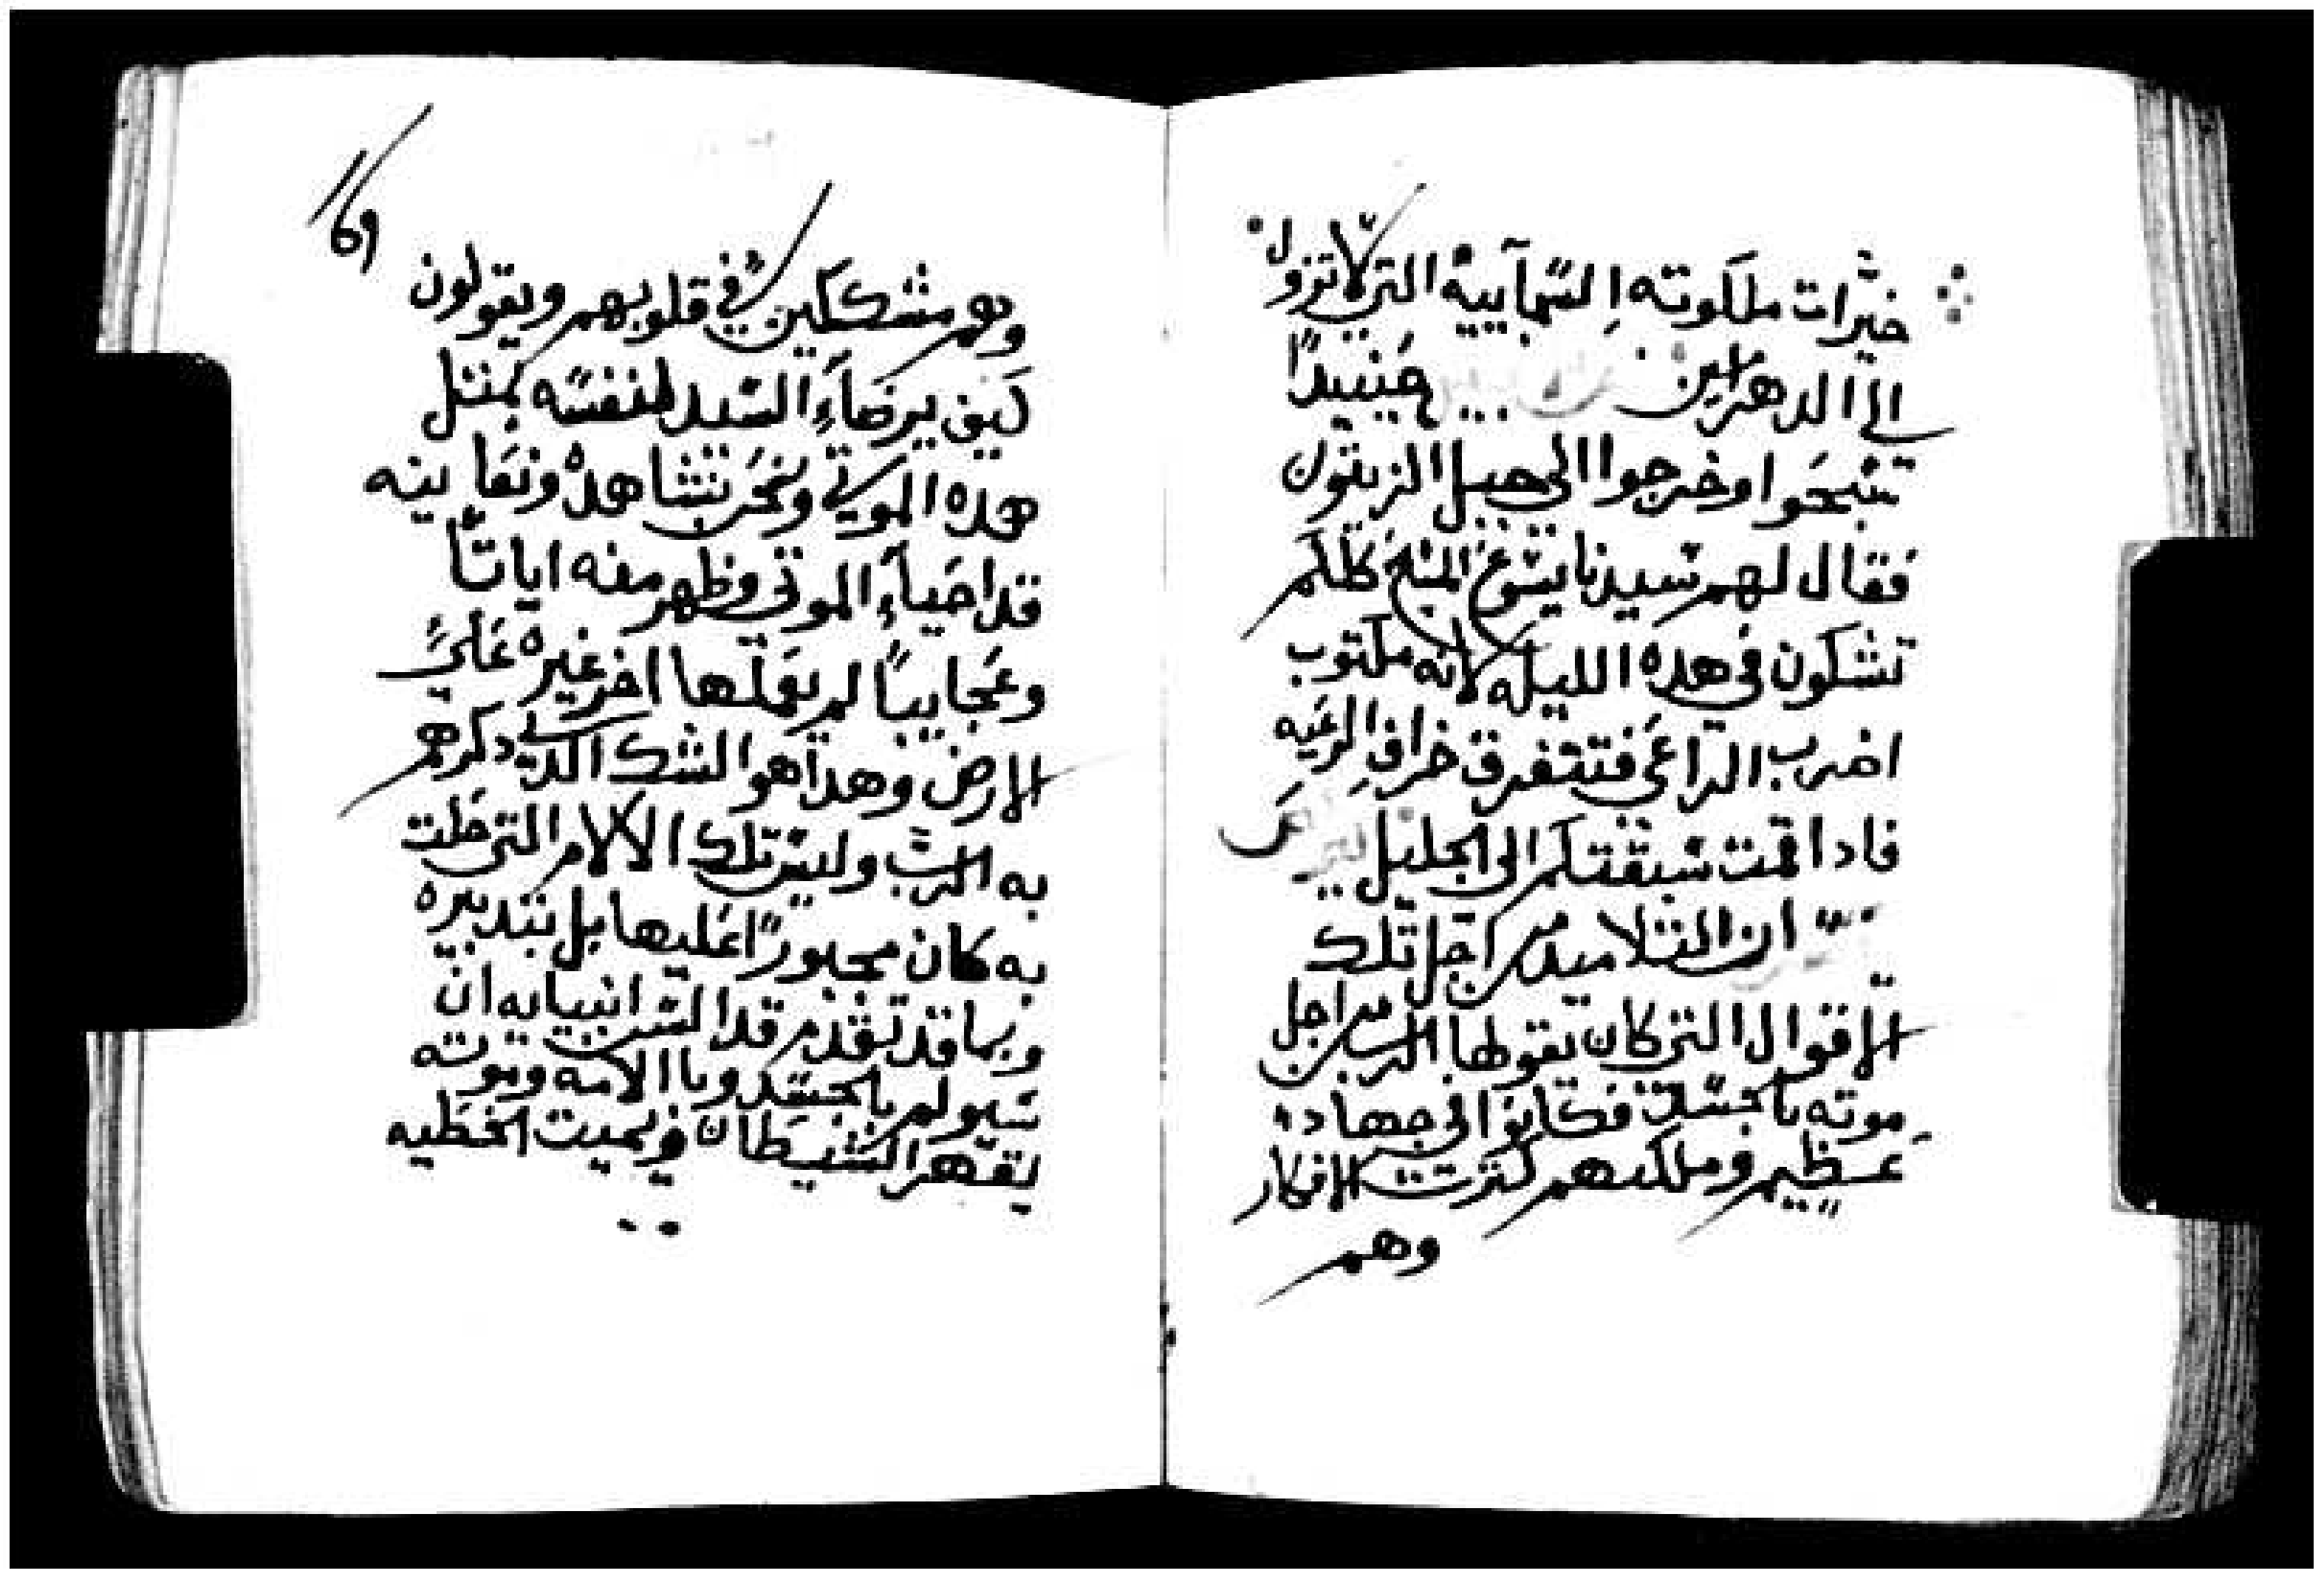 خيرات ملكوته السمآييه التي لا تزول
الي الدهر امين حنيدًا
سبحوا وخرجوا الي جبل الزيتون
فقال لهم سيدنا يسوع المسيح كلكم
تشكون في هده الليله لانه مكتوب
اضرب الراعي فتتفرق خراف الرعيه
فادا قمت سبقتكم الي الجليل
ان التلاميد من اجل تلك
الاقوال التي كان يقولها الرب من اجل
موته بالجسد فكانوا في جهاد
عظيم وملكتهم كترت الافكار
وهم
وهم مشككين في قلوبهم ويقولون
كيف يرضاء السيد لنفسه بمتل
هده الموتي ونحن نشاهده ونعاينه
قد احياء الموتي وظهر منه اياتًا
وعجايبًا لم يعملها اخر غيره علي
الارض وهدا هو الشك الدي دكرهم
به الرب وليس تلك الالام التي حلت
به كان مجبورًا عليها بل بتدبيره
وبما قد تقدم قدا السن انبيايه ان
سيولم بالجسد وبا الامه وموته
يقهر الشيطان ويميت الخطيه